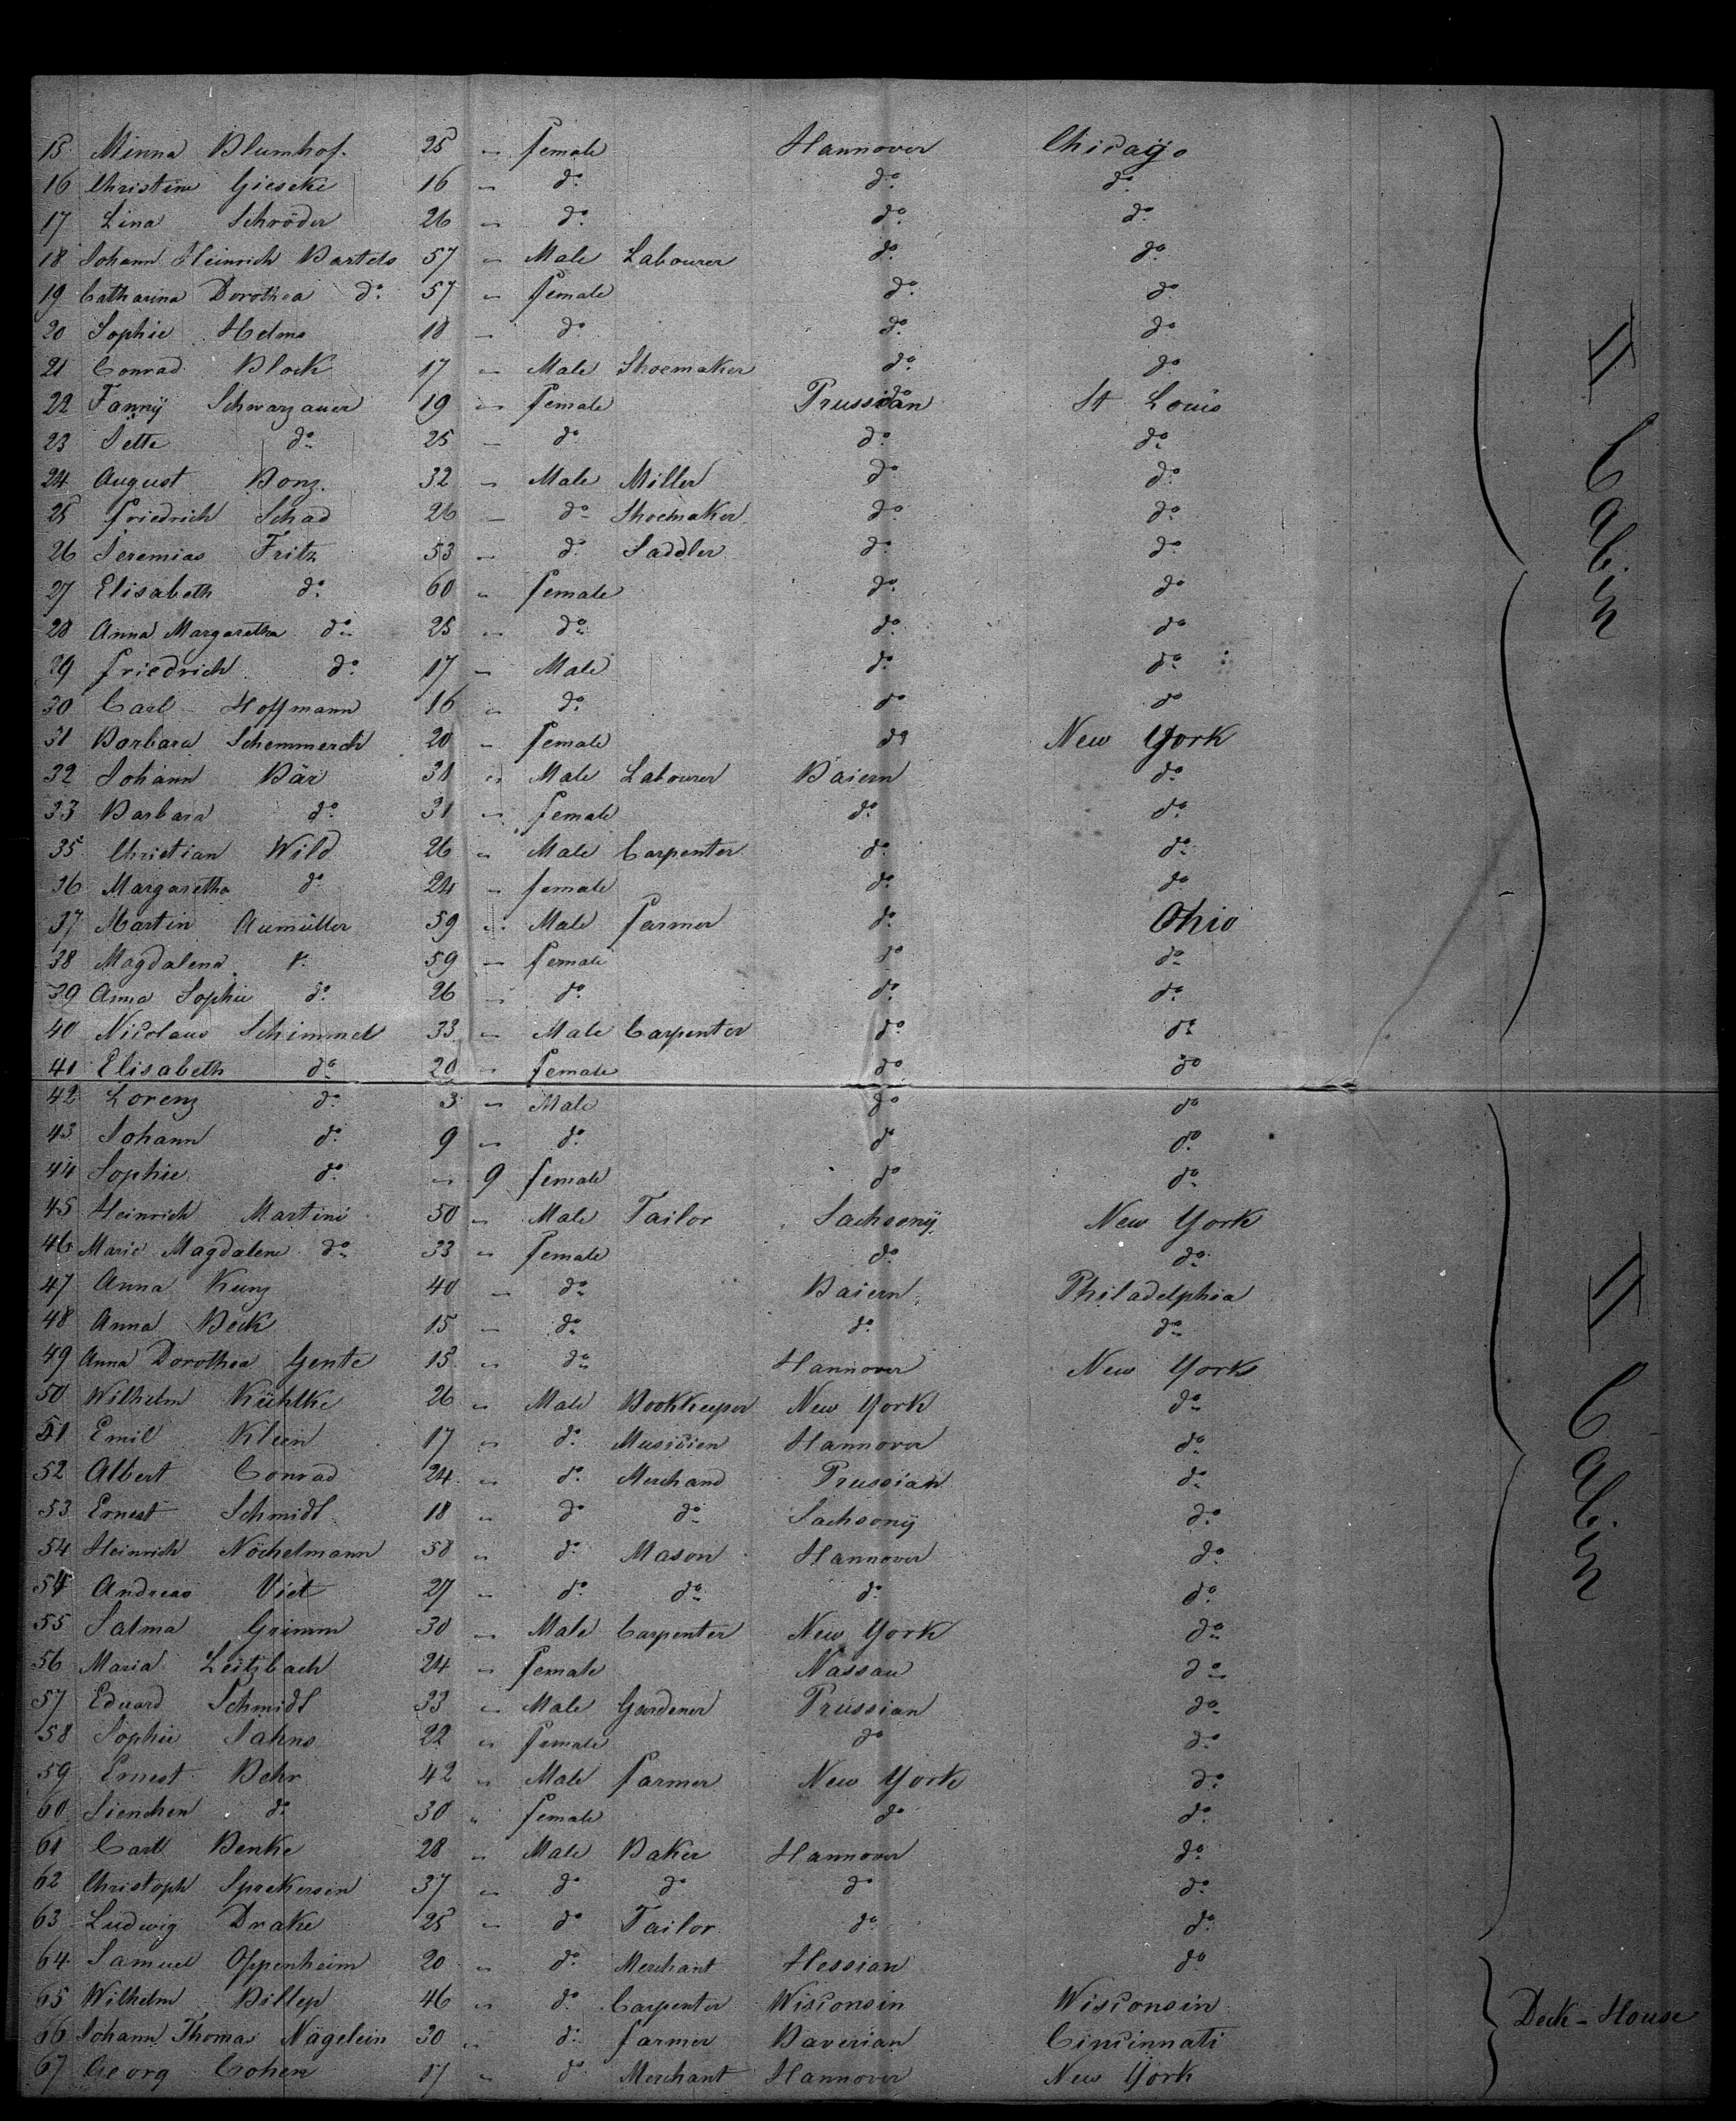 15 Minna Blumhof. 25 " female Hannover Chicago
16 Christine Gieseke 16 " do. do. do.
17 Lina Schröder 26 " do. do. do.
18 Johann Heinrich Bartels 57 " Male Labourer do. do.
19 Catharina Dorothea do. 57 " female do. do.
20 Sophie Helms 18 " do. do. do.
21 Conrad Block 17 " Male Shoemaker do. do.
22 Fanny Schwarzauer 19 " female Prussian do St Louis
23 Jette do. 25 " do. do. do.
24 August Bonz. 32 " Male Miller do. do.
25 Friedrich Schad 26 " do. Shoemaker do. do.
26 Jeremias Fritz 53 " do. Saddler do. do.
27 Elisabeth do. 60 " female do. do.
28 Anna Margaretha do. 25 " do. do. do.
29 Friedrich do. 17 " Male do. do.
30 Carl Hoffmann 16 " do. do. do.
31 Barbara Schemmerch 20 " female do. New York
32 Johann Bär 31 " Male Labourer Baiern do.
33 Barbara do. 31 " female do. do.
35 Christian Wild 26 " Male Carpenter do. do.
36 Margaretha do. 24 " female do. do.
37 Martin Aumüller 59 " Male farmer do. Ohio
38 Magdalena do. 59 " female do. do.
39 Anna Sophie do. 26 " do. do. do.
40 Nicolaus Schimmel 33 " Male Carpenter do. do.
41 Elisabeth do. 20 " female do. do.
42 Lorenz do. 3 " Male do. do.
43 Johann do. 9 " do. do. do.
44 Sophie do. " 9 female do. do.
45 Heinrich Martini 50 " Male Tailor Sachsony New York
46 Marie Magdalene do. 33 " female do. do.
47 Anna Kunz 40 " do. Baiern Philadelphia
48 Anna Beck 15 " do. do. do.
49 Anna Dorothea Gente 15 " do. Hannover New York
50 Wilhelm Kühlke 26 " Male Bookkeeper New York do.
51 Emil Klein 17 " do. Musicien Hannover do.
52 Albert Conrad 24 " do. Merchand Prussian do.
53 Ernest Schmidt 18 " do. do. Sachsony do.
54 Heinrich Nöchelmann 58 " do. Mason Hannover do.
54 Andreas Viet 27 " do. do. do. do.
55 Salma Grimm 30 " Male Carpenter New York do.
56 Maria Leitzbach 24 " female Nassau do.
57 Eduard Schmidt 33 " Male Gardener Prussian do.
58 Sophie Jahns 22 " female do. do.
59 Ernest Behr 42 " Male farmer New York do.
60 Sienchen do. 30 " female do. do.
61 Carl Benke 28 " Male Baker Hannover do.
62 Christoph Spreckersen 37 " do. do. do. do.
63 Ludwig Drake 25 " do. Tailor do. do.
64 Samuel Oppenheim 20 " do. Merchant Hessian do.
65 Wilhelm Billep 46 " do. Carpenter Wisconsin Wisconsin
66 Johann Thomas Nägelein 30 " do. farmer Baverian Cincinnati
67 Georg Cohen 17 " do. Merchant Hannover New York
II Cabin
II Cabin
Deck-House